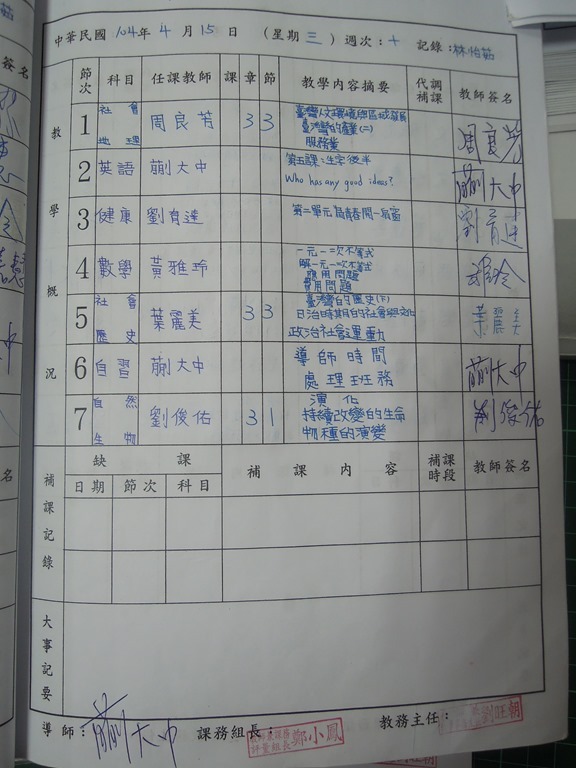 中華民國 104 年 4 月 15 日 (星期三) 週次:十 記錄:林怡茹
節次 科目 任課教師 課 章 節 教學內容摘要 代調補課 教師簽名
教學概況
1 社會 地理 周良芳 3 3 臺灣人文環境與區域發展
臺灣的產業(二)
服務業 周良芳
2 英語 蒯大中 第五課:生字後半
Who has any good ideas? 蒯大中
3 健康 劉育達 第二單元 為青春開一扇窗 劉育達
4 數學 黃雅玲 一元一次不等式
解一元一次不等式
應用問題
費用問題
5 社會 歷史 葉麗美 3 3 臺灣的歷史(下)
日治時期的社會與文化
政治社會運動 葉麗美
6 自習 蒯大中 導師時間
處理班務 蒯大中
7 自然 生物 劉俊佑 3 1 演化
持續改變的生命
物種的演變 劉俊佑
補課記錄
缺課 補課內容 補課時段 教師簽名
日期 節次 科目
大事記要
導師: 蒯大中 課務組長: 鄭小鳳 教務主任: 劉旺朝